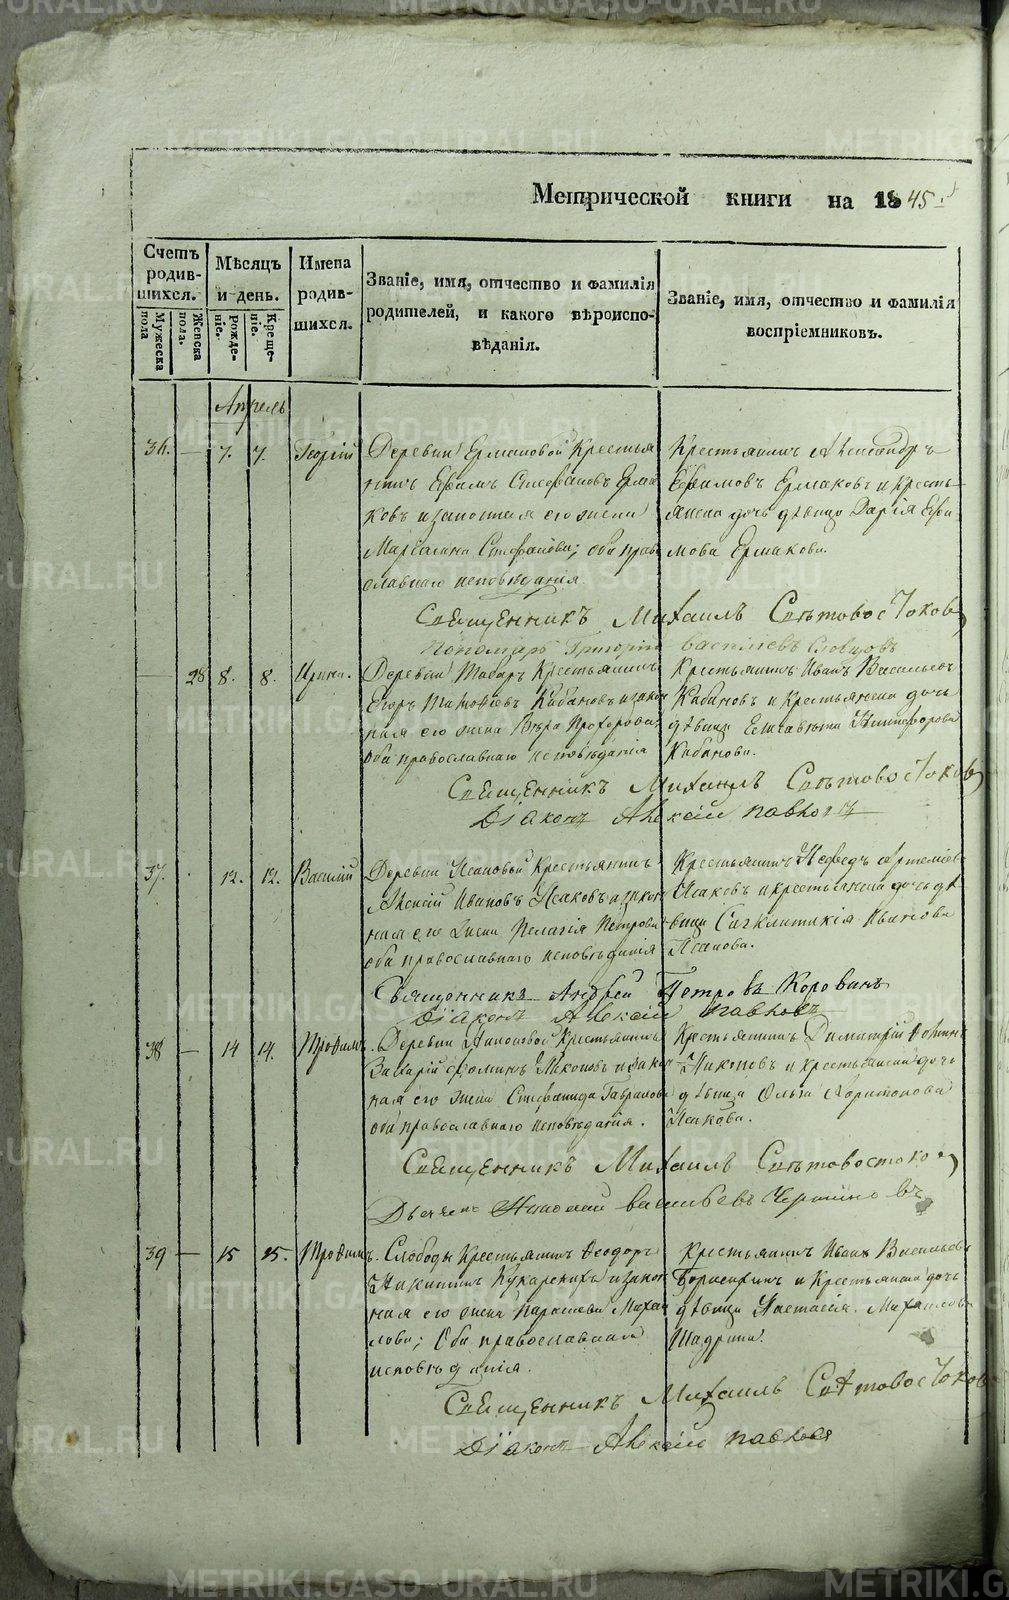 Метрической книги на 1845 г
Счетъ родившихся.
Мужеска пола
Женска пола.
Мѣсяцъ и день.
Рожденіе.
Крещеніе.
Имена родившихся.
Званіе, имя, отчество и фамилія
родителей, и какого вѣроиспо-
вѣданія.
Званіе, имя, отчество и фамилія
воспріемниковъ.
Апрель
36. — 7. 7. Георгій
Деревни Ермаковой Крестья
нинъ Ефимъ Стефановъ Ерма
ковъ и законная его жена
Стефанова; оба право
славнаго исповѣданія
Крестьянинъ Александръ
Ефимовъ Ермаковъ и кресть
янска дочь дѣвица Дарія Ефи
мова Ермакова.
Священникъ Михаилъ Свѣтовостоков
Пономарь Григорій Васильевъ Словцовъ
— 28 8. 8. Ирина.
Деревни Табаръ Крестьянинъ
Егоръ Кабановъ и закон
ная его жена Вѣра Прохорова
оба православнаго исповѣданія
Крестьянинъ Иванъ Васильевъ
Кабановъ и Крестьянска дочь
дѣвица Елисавета Никифорова
Кабанова.
Священникъ Михаилъ Свѣтовостоков
Діаконъ Алексій Павловъ
37. 12. 12. Василій
Деревни Исаковой Крестьянинъ
Алексій Ивановъ Исаковъ и закон
ная его жена Пелагія Петрова
оба православнаго исповѣданія
Крестьянинъ Нефедъ Артеміев
Исаковъ и крестьянска дочь дѣ
вица Сигклитикія Иванова
Исакова.
Священникъ Андрей Петровъ Коровинъ
Діаконъ Алексій Павловъ
38 — 14 14. Трофимъ.
Деревни Никоновой Крестьянинъ
Захарій Фоминъ Никоновъ и закон
ная его жена Стефанида Гаврилова
оба православнаго исповѣданія.
Крестьянинъ Димитрій Фоминъ
Никоновъ и крестьянска дочь
дѣвица Ольга Харитонова
Исакова.
Священникъ Михаилъ Свѣтовостоков
Дьячекъ Николай Васильевъ
39 — 15 15. Трофимъ.
Слободы Крестьянинъ Феодоръ
Никитинъ Кукарскихъ и закон
ная его жена Параскева Михаи
лова; Оба православнаго
исповѣданія.
Крестьянинъ Иванъ Васильевъ
Борисихинъ и Крестьянска дочь
дѣвица Настасія Михайлова
Шадрина.
Священникъ Михаилъ Свѣтовостоков
Діаконъ Алексій Павловъ